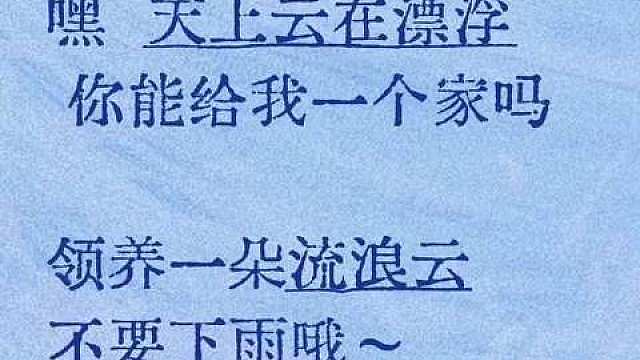 嘿 天上云在漂浮
你能给我一个家吗
领养一朵流浪云
不要下雨哦～